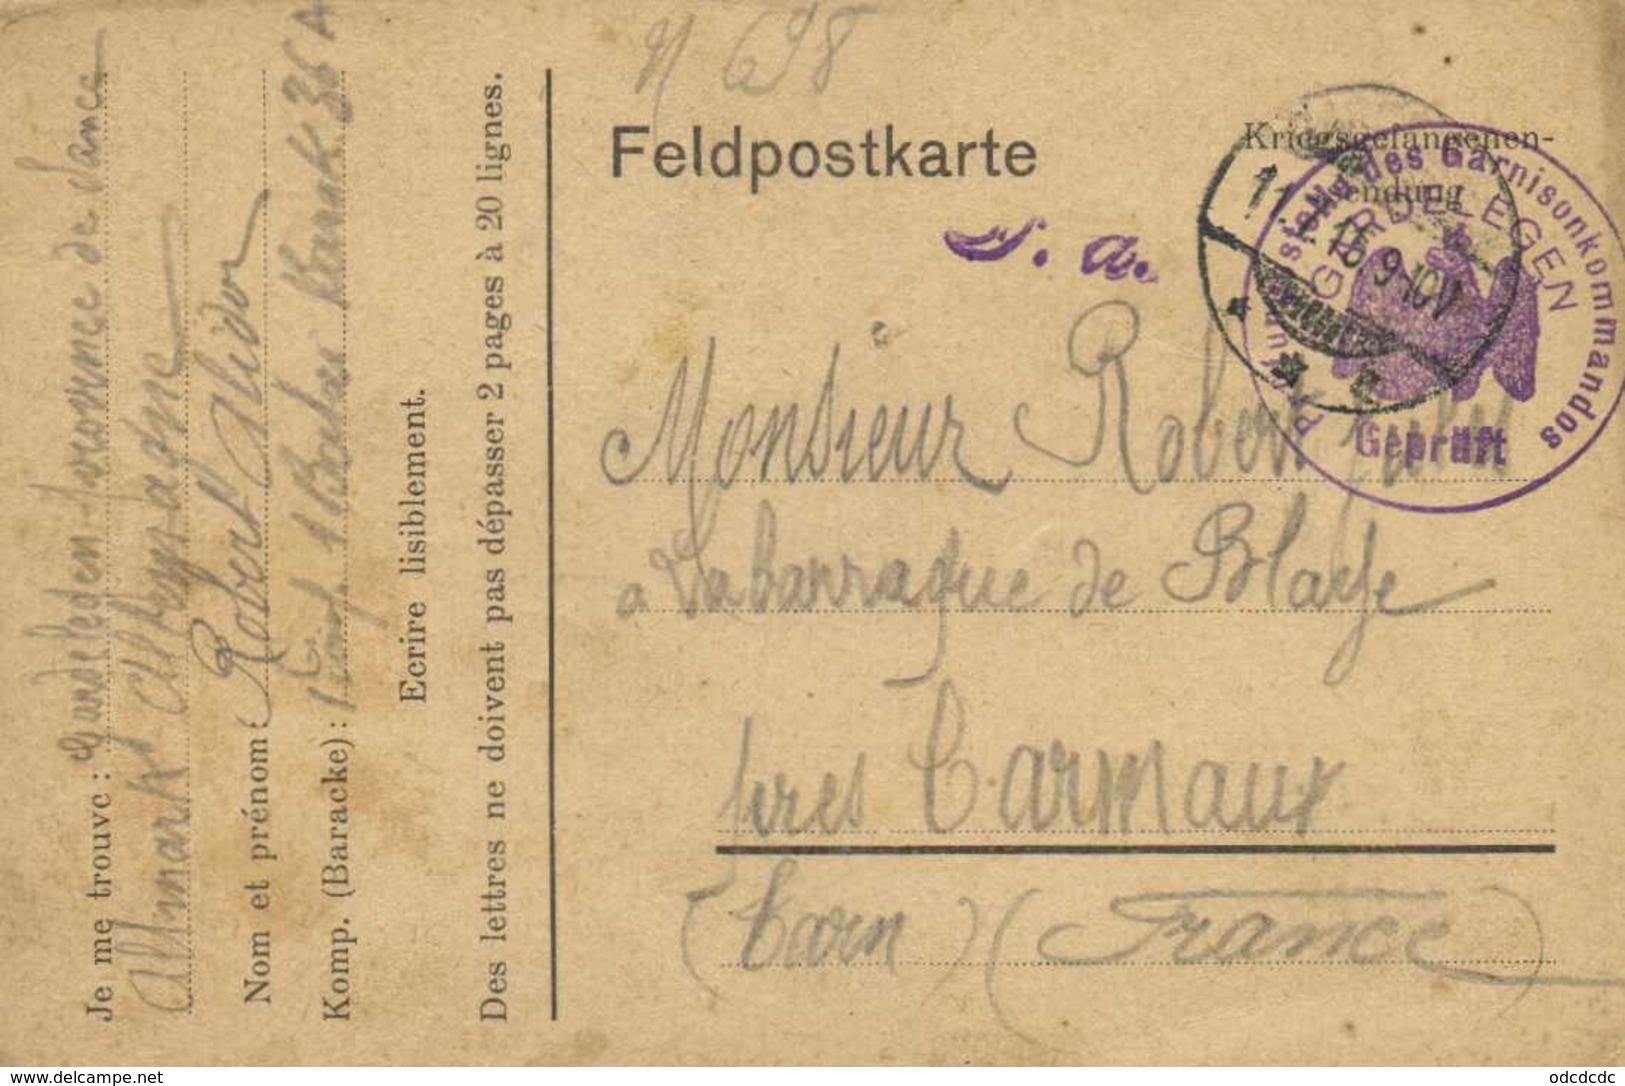 N 698
Feldpostkarte
Kriegsgefangenen-
sendung
S. a.
Prüfungsstelle des Garnisonkommandos
GARDELEGEN
Geprüft
11. 1. 16 9-10V
Monsieur Robert
a Labarraque de Blaye
pres Carmaux
(Tarn) (France)
Je me trouve : Gardeleden province de Sance
Altmark d'Allemagne
Nom et prénom : Robert Alidor
Komp. (Baracke) : Barak 36 A
Ecrire lisiblement.
Des lettres ne doivent pas dépasser 2 pages à 20 lignes.
www.delcampe.net
odcdcdc